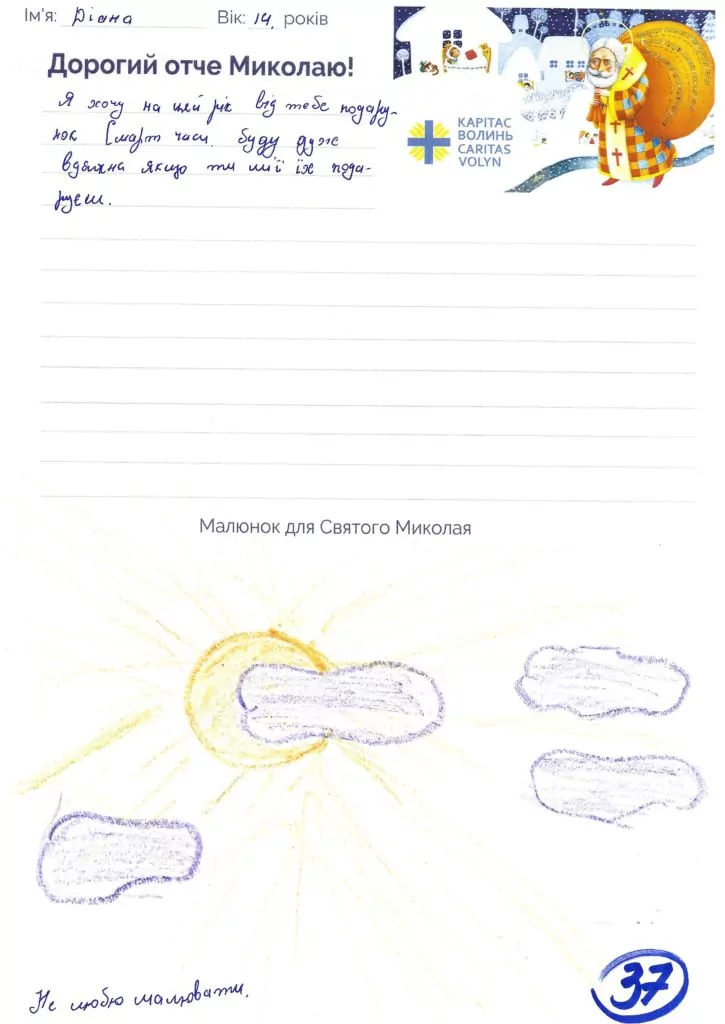 Ім'я: Діана Вік: 14, років
Дорогий отче Миколаю!
Я хочу на цей рік від тебе подару-
нок Смарт часи. буду дуже
вдячна якщо ти мої їх пода-
руєш.
КАРІТАС
ВОЛИНЬ
CARITAS
VOLYN
Малюнок для Святого Миколая
Не люблю малювати.
37